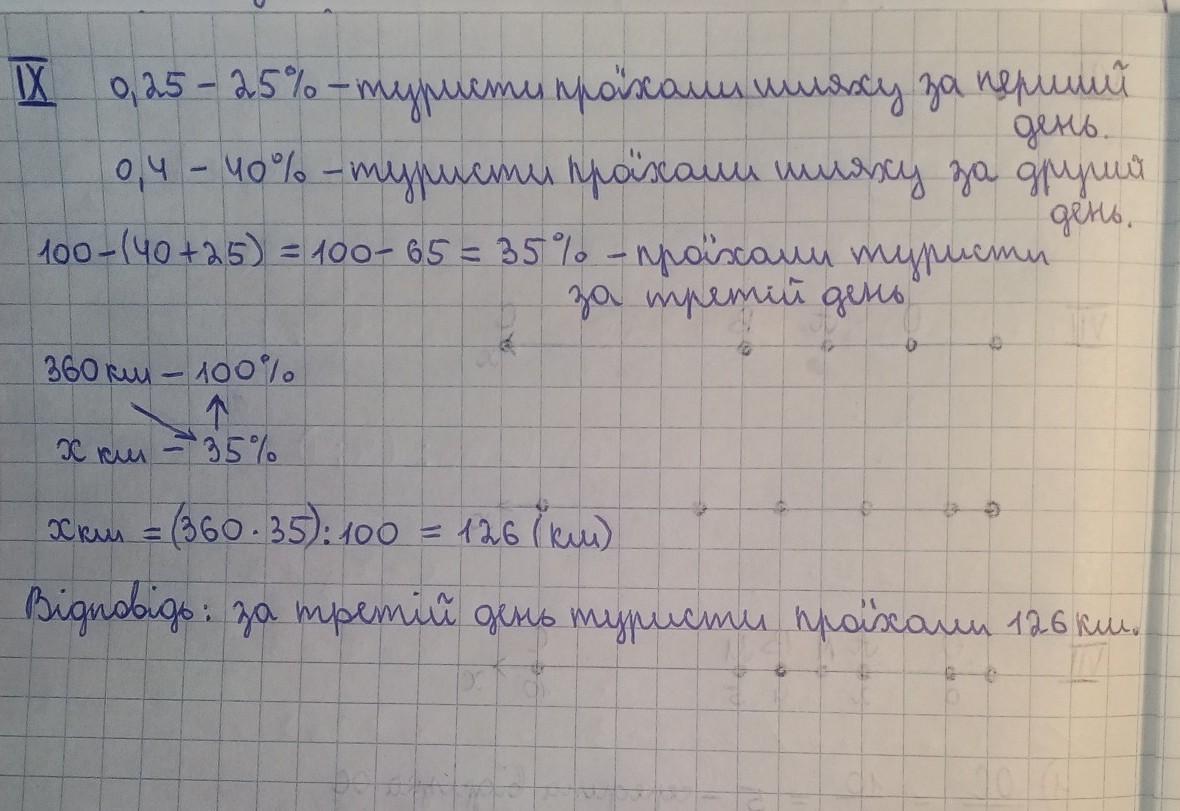 IX 0,25 – 25% – туристи проїхали шляху за перший
день.
0,4 – 40% – туристи проїхали шляху за другий
день.
100-(40+25) = 100-65 = 35% – проїхали туристи
за третій день
360 км – 100%
х км – 35%
х км = (360·35):100 = 126 (км)
Відповідь: за третій день туристи проїхали 126 км.